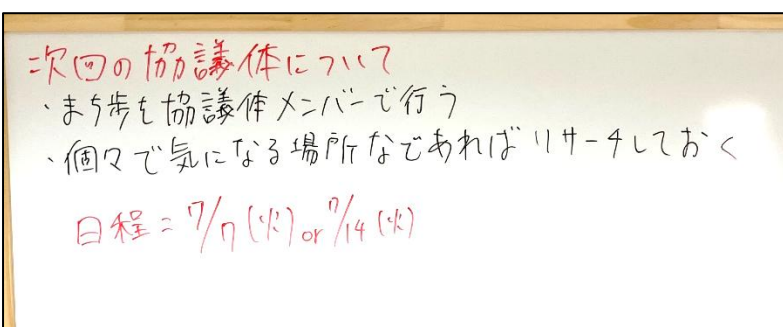 次回の協議体について
・まち歩を協議体メンバーで行う
・個々で気になる場所などあればリサーチしておく
日程：7/7(火)or 7/14(火)